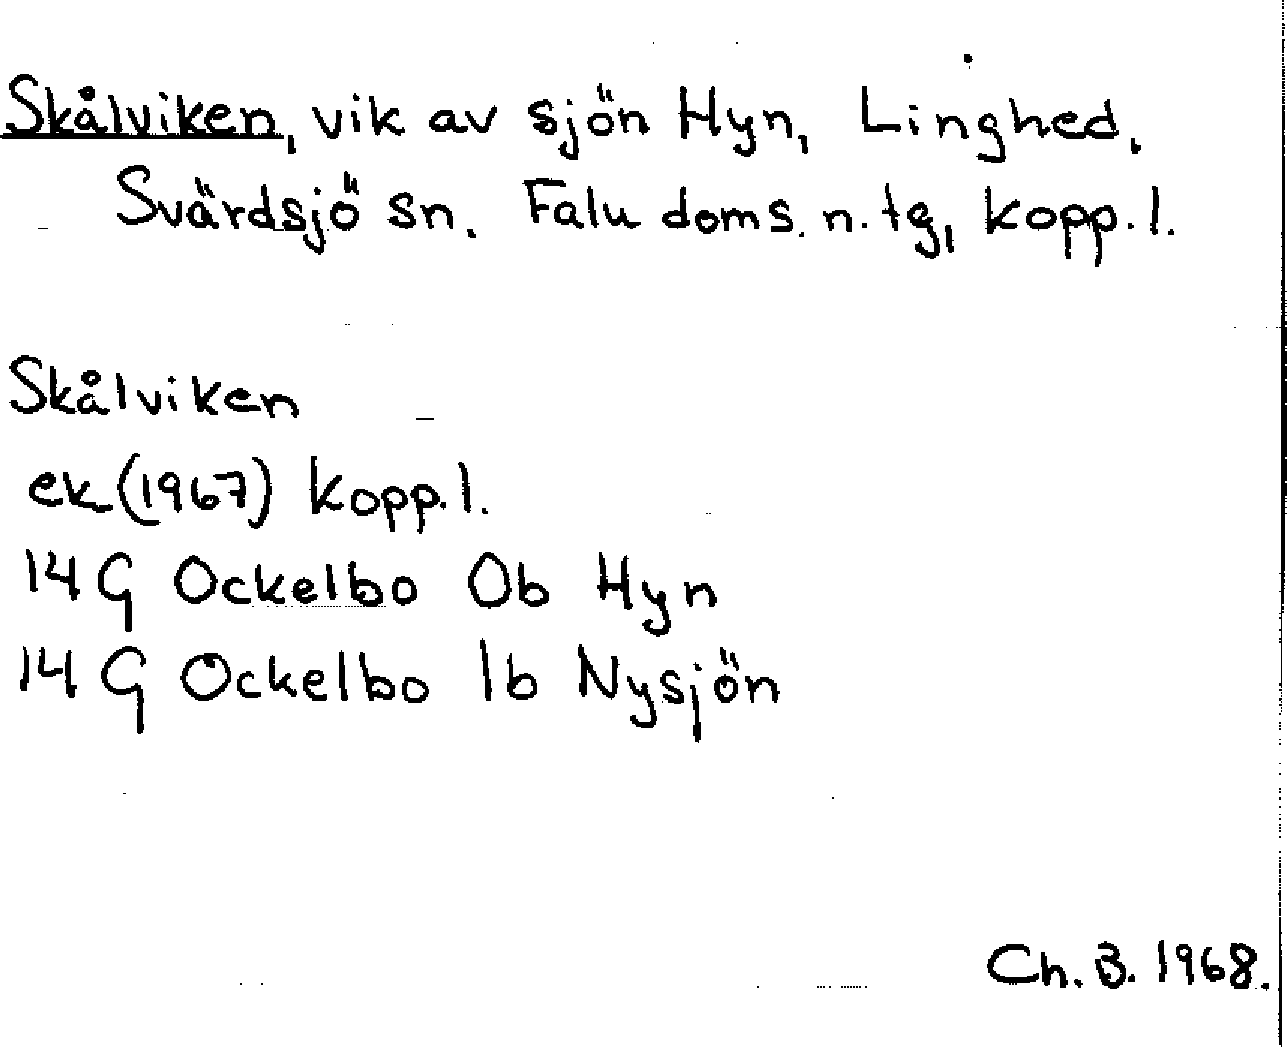 Skålviken, vik av sjön Hyn, Linghed,
Svärdsjö sn. Falu doms. n. tg, Kopp. l.
Skålviken
ek (1967) Kopp. l.
14 G Ockelbo 0b Hyn
14 G Ockelbo 1b Nysjön
Ch. B. 1968.